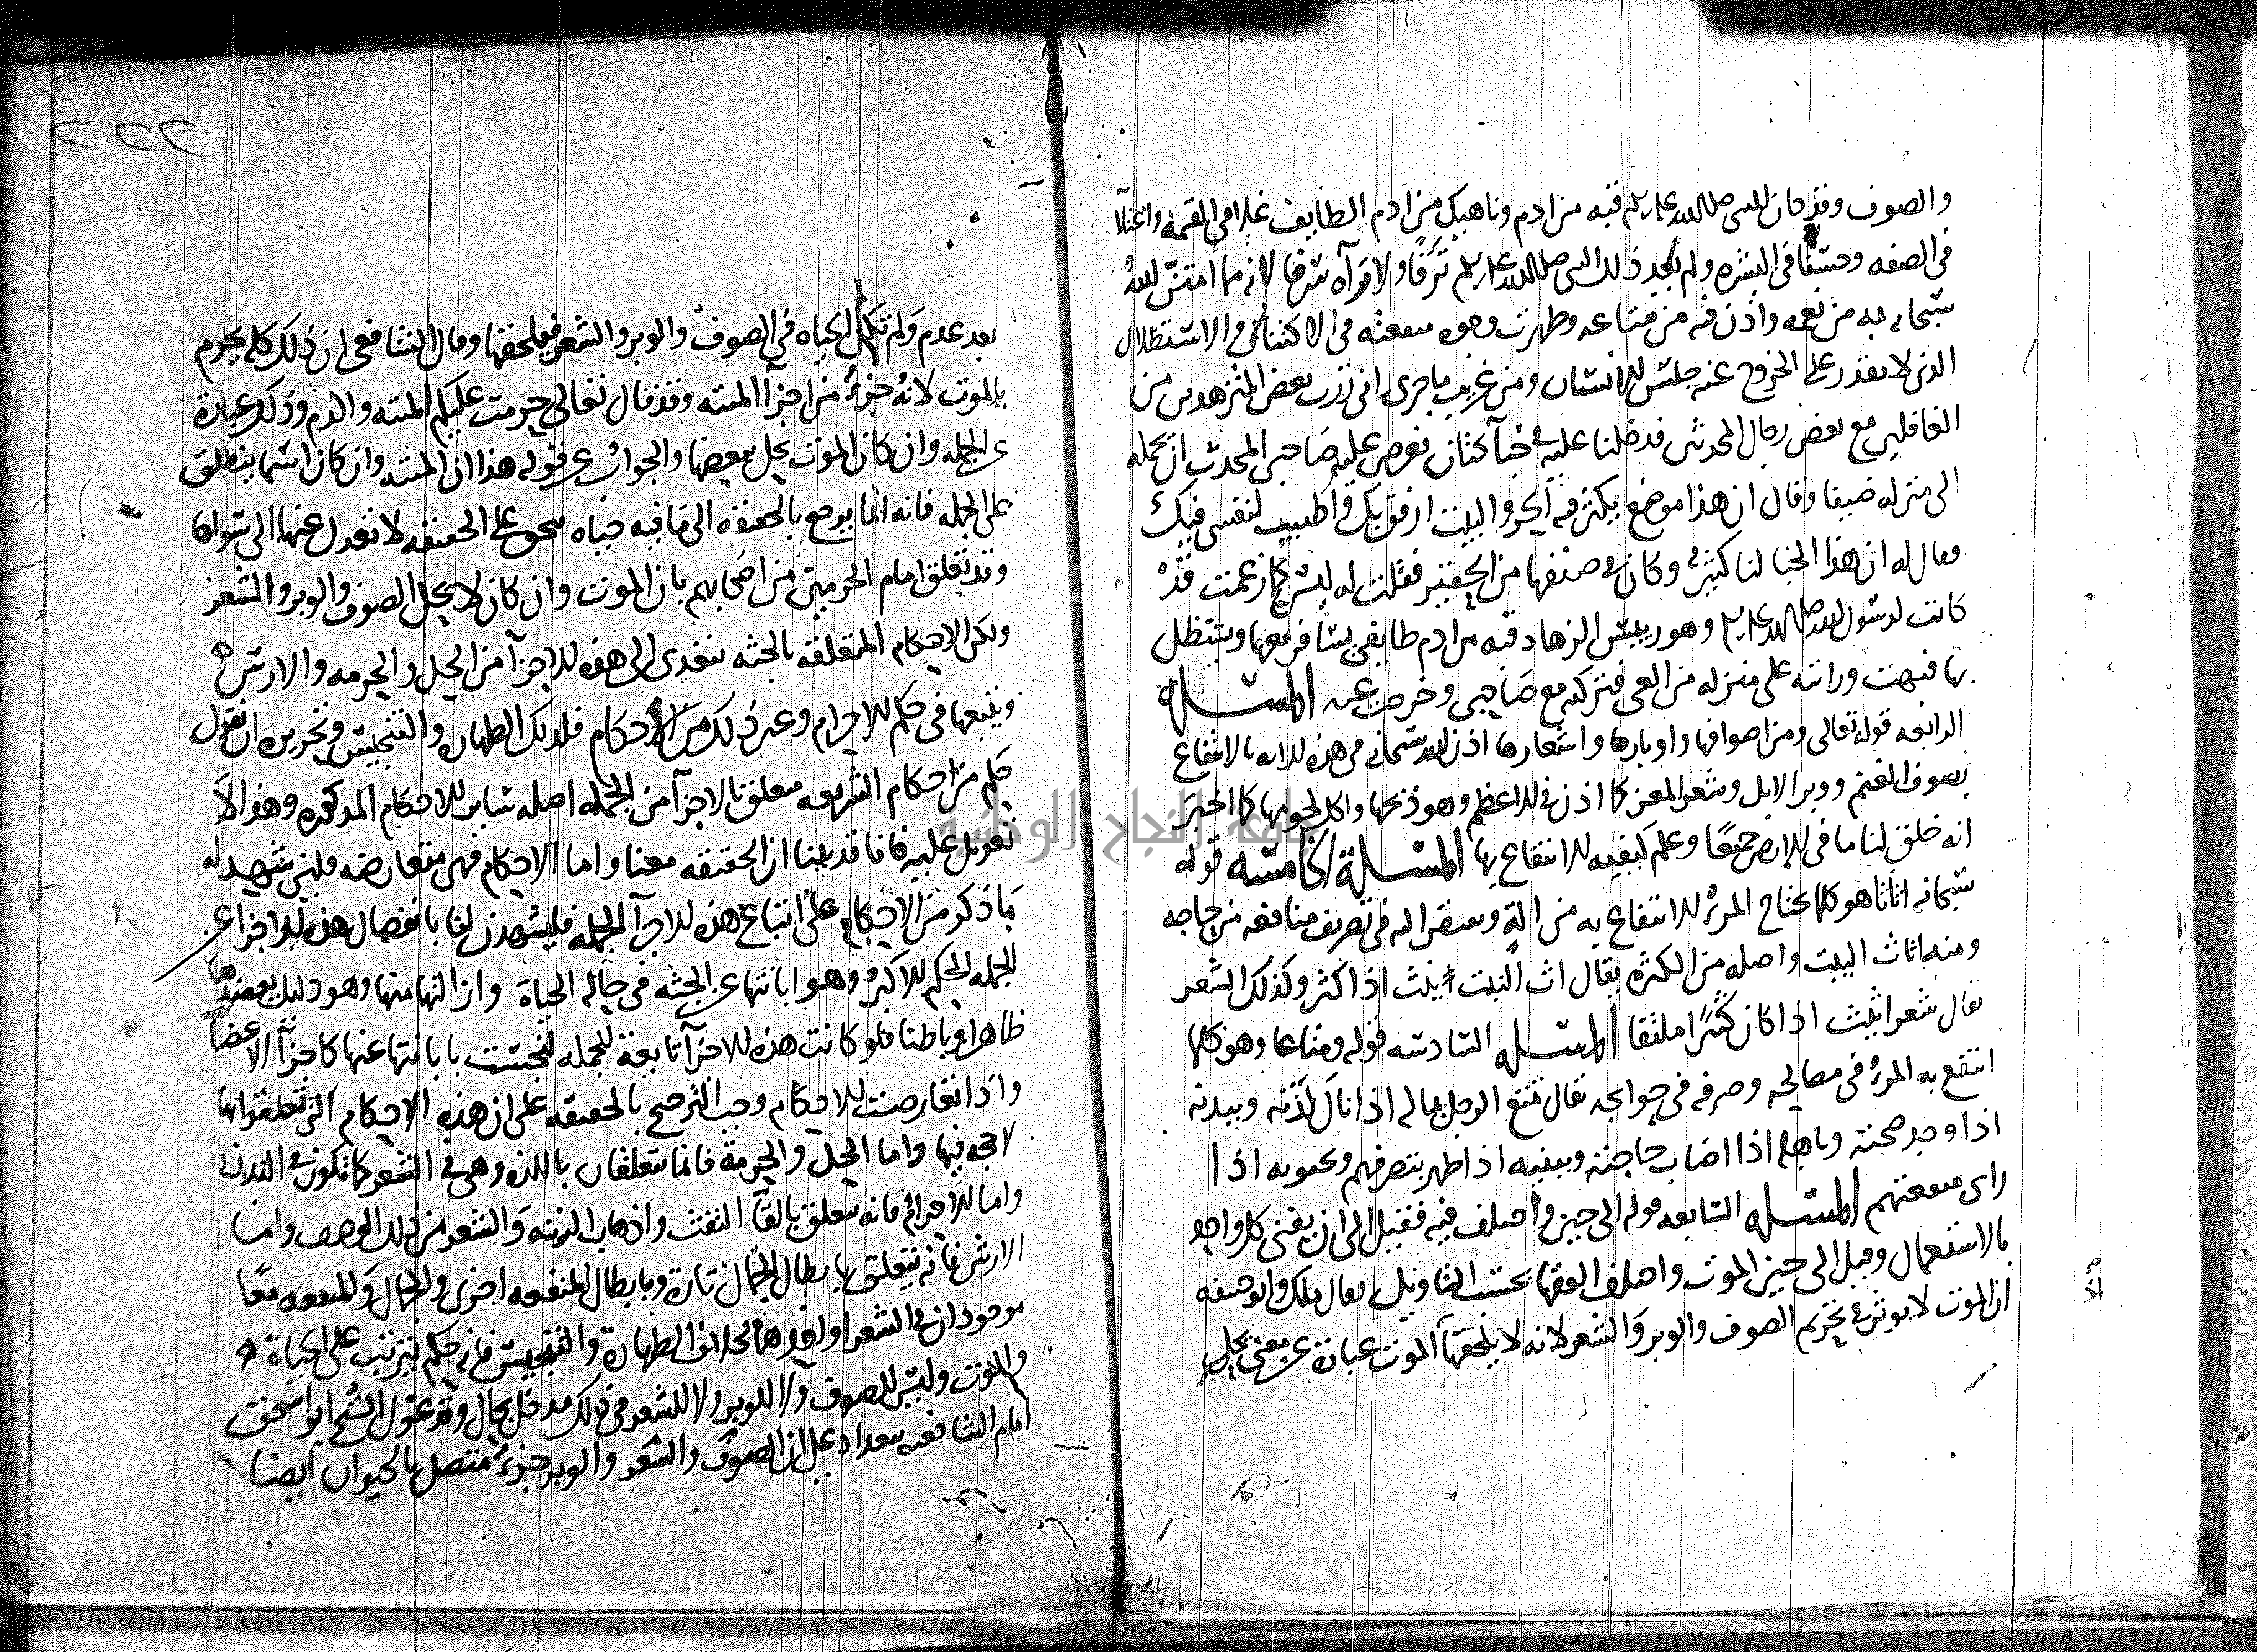 والصوف وقد كان للنبي صلى الله عليه وسلم قبه من ادم وناهيك من ادم الطايف غلا في القيمه واعتلا
في الصفه وحسنا في البشره ولم يعد ذلك النبي صلى الله عليه وسلم ترفا ولا رآه سرفا لانه مما امتن الله
سبحانه به من نعمه واذن فيه من متاعه وظهرت وجوه منفعته في الاكتنان والاستظلال
الذي لا يقدر على الخروج عنه جنس الانسان ومن غريب ما جرى اني زرت بعض المتزهدين من
الغافلين مع بعض رجال المحدثين فدخلنا عليه في خبآ كتان فعرض عليه صاحبي المحدث ان يحمله
الى منزله ضيفا وقال ان هذا موضع يكثر فيه الحر والبيت ارفق بك واطيب لنفسي فيك
فقال له ان هذا الخبا لنا كثير وكان في صنفها من الحقير فقلت له ليس كما زعمت قد
كانت لرسول الله صلى الله عليه وسلم وهو رييس الزهاد قبه من ادم طايفي يسافر معها ويستظل
بها فبهت ورايته على منزله من العي فتركته مع صاحبي وخرجت عنه المسله
الرابعه قوله تعالى ومن اصوافها واوبارها واشعارها اذن الله سبحانه في هذه الايه بالانتفاع
بصوف الغنم ووبر الابل وشعر المعز كما اذن في الاعظم وهو ذبحها واكل لحومها كما اخبر
انه خلق لنا ما في الارض جميعا وعلم كيفيه الانتفاع بها المسلة الخامسه قوله
سبحانه اثاثا هو كلما يحتاج المرؤ للانتفاع به من الة ويفتقر اليه في تصريف منافعه من حاجه
ومنه اثاث البيت واصله من الكثره يقال اث النبت يئث اذا كثر وكذلك الشعر
يقال شعر اثيث اذا كان كثيرا ملتفا المسله السادسه قوله ومتاعا وهو كلما
انتفع به المرؤ في مصالحه وصرفه في حوايجه يقال تمتع الرجل بماله اذا نال لذته وببدنه
اذا وجد صحته وباهله اذا اصاب حاجته وببنيه اذا ظهر بنصرهم وبجيرته اذا
راى منفعتهم المسله السابعه قوله الى حين واختلف فيه فقيل الى ان يفنى كل واحد
بالاستعمال وقيل الى حين الموت واختلف الفقها بحسب التاويل فقال ملك وابو حنيفه
ان الموت لا يوثر في تحريم الصوف والوبر والشعر لانه لا يلحقها الموت عبارة عن معنى يحل
٢٢٢
بعد عدم ولم تكن الحياه في الصوف والوبر والشعر فيلحقها وقال الشافعي ان ذلك كله يحرم
بالموت لانه جزؤ من اجزآ الميته وقد قال تعالى حرمت عليكم الميته والدم وذلك عبارة
عن الجمله وان كان الموت يحل ببعضها والجواب عن قوله هذا ان الميته وان كان اسما ينطلق
على الجمله فانه انما يرجع بالحقيقه الى ما فيه حياه فنحن على الحقيقه لا نعدل عنها الى سواها
وقد تعلق امام الحرمين من اصحابهم بان الموت وان كان لا يحل الصوف والوبر والشعر
ولكن الاحكام المتعلقه بالجثه تتعدى الى هذه الاجزآ من الحل والحرمه والارش
ويتبعها في حكم الاحرام وغير ذلك من الاحكام فكذلك الطهاره والتنجيس وتحريره ان نقول
حكم من احكام الشريعه متعلق بالاجزآ من الجمله اصله ساير الاحكام المذكوره وهذا لا
تعويل عليه فانا قد بينا ان الحقيقه معنا واما الاحكام فهي متعارضه فلين شهد له
ما ذكر من الاحكام على اتباع هذه الاجزآ الجمله فليشهدن لنا بانفصال هذه الاجزآ عن
الجمله الحكم الاكبر وهو ابانتها عن الجثه في حاله الحياة وازالتها منها وهو دليل يعضدها
ظاهرا وباطنا فلو كانت هذه الاجزآ تابعة للجمله لنجست بابانتها عنها كاجزآ الاعضا
واذا تعارضت الاحكام وجب الترجيح بالحقيقه على ان هذه الاحكام التي تعلقوا بها
لا حجه فيها واما الحل والحرمة فانما يتعلقان باللذه وهي في الشعر كما تكون في البدن
واما الاحرام فانه يتعلق بالقآ التفث واذهاب الزينه والشعر من ذلك الوصف واما
الارش فانه يتعلق بابطال الجمال تارة وبابطال المنفعه اخرى والجمال والمنفعه معا
موجودان في الشعر او احدهما بخلاف الطهارة والتنجيس فانه حكم يترتب على الحياة
والموت وليس للصوف ولا للوبر ولا للشعر في ذلك مدخل بحال وقد عول الشيخ ابو اسحق
امام الشافعيه ببغداد على ان الصوف والشعر والوبر جزؤ متصل بالحيوان ايضا